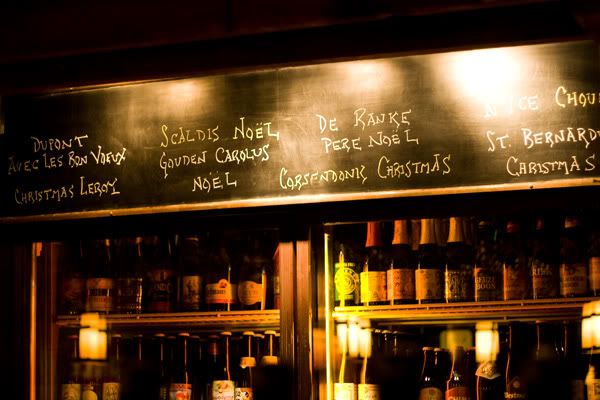 DUPONT
AVEC LES BON VOEUX
CHRISTMAS LEROY
SCALDIS NOËL
GOUDEN CAROLUS
NOËL
DE RANKE
PERE NOËL
CORSENDONK CHRISTMAS
ICE CHOU
ST. BERNARD
CHRISTMAS